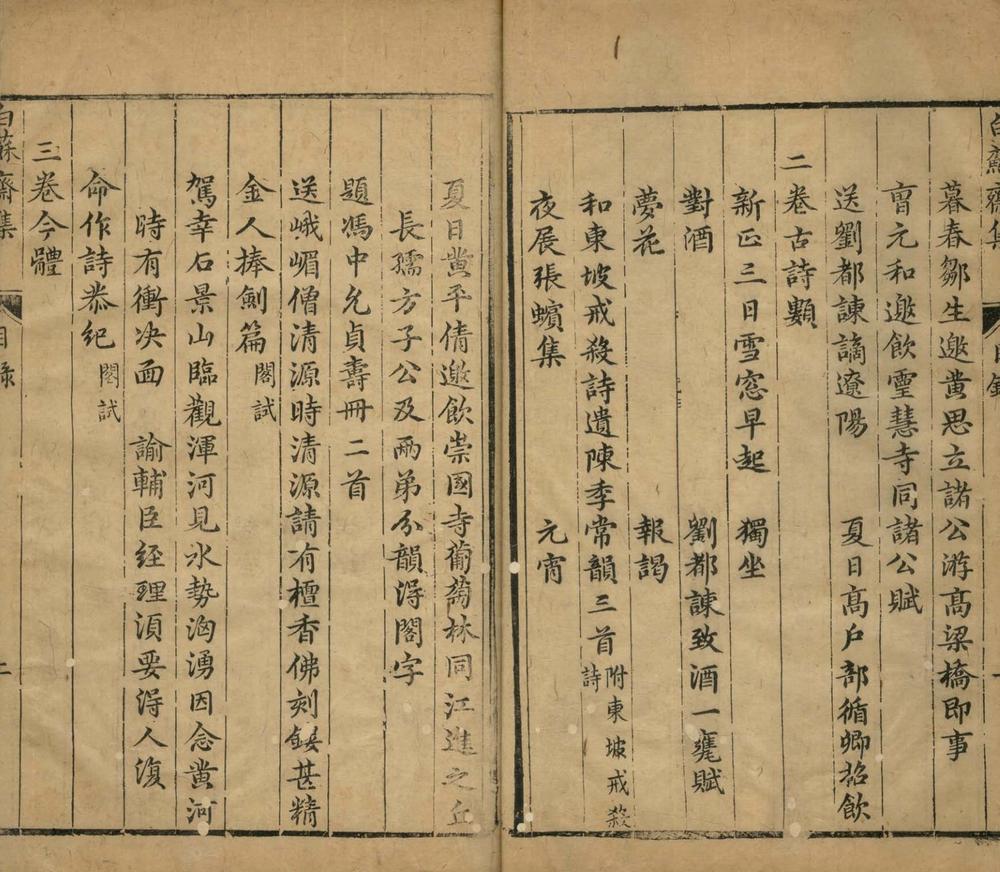 白蘇齋集 目錄
暮春鄒生邀黄思立諸公游高梁橋即事
曹元和邀飲靈慧寺同諸公賦
送劉都諫謫遼陽 夏日高户部循卿招飲
二卷古詩類
新正三日雪窓早起 獨坐
對酒 劉都諫致酒一甕賦
夢花 報謁
和東坡戒殺詩遺陳季常韻三首附東坡戒殺詩
夜展張蠙集 元宵
夏日黄平倩邀飲崇國寺葡萄林同江進之丘
長孺方子公及兩弟分韻得閣字
題馮中允貞壽冊二首
送峨嵋僧清源時清源請有檀香佛刻鋟甚精
金人捧劍篇閣試
駕幸石景山臨觀渾河見水勢洶湧因念黄河
時有衝决面 諭輔臣經理湏要得人復
命作詩恭紀閣試
三卷今體
白蘇齋集 目錄 二